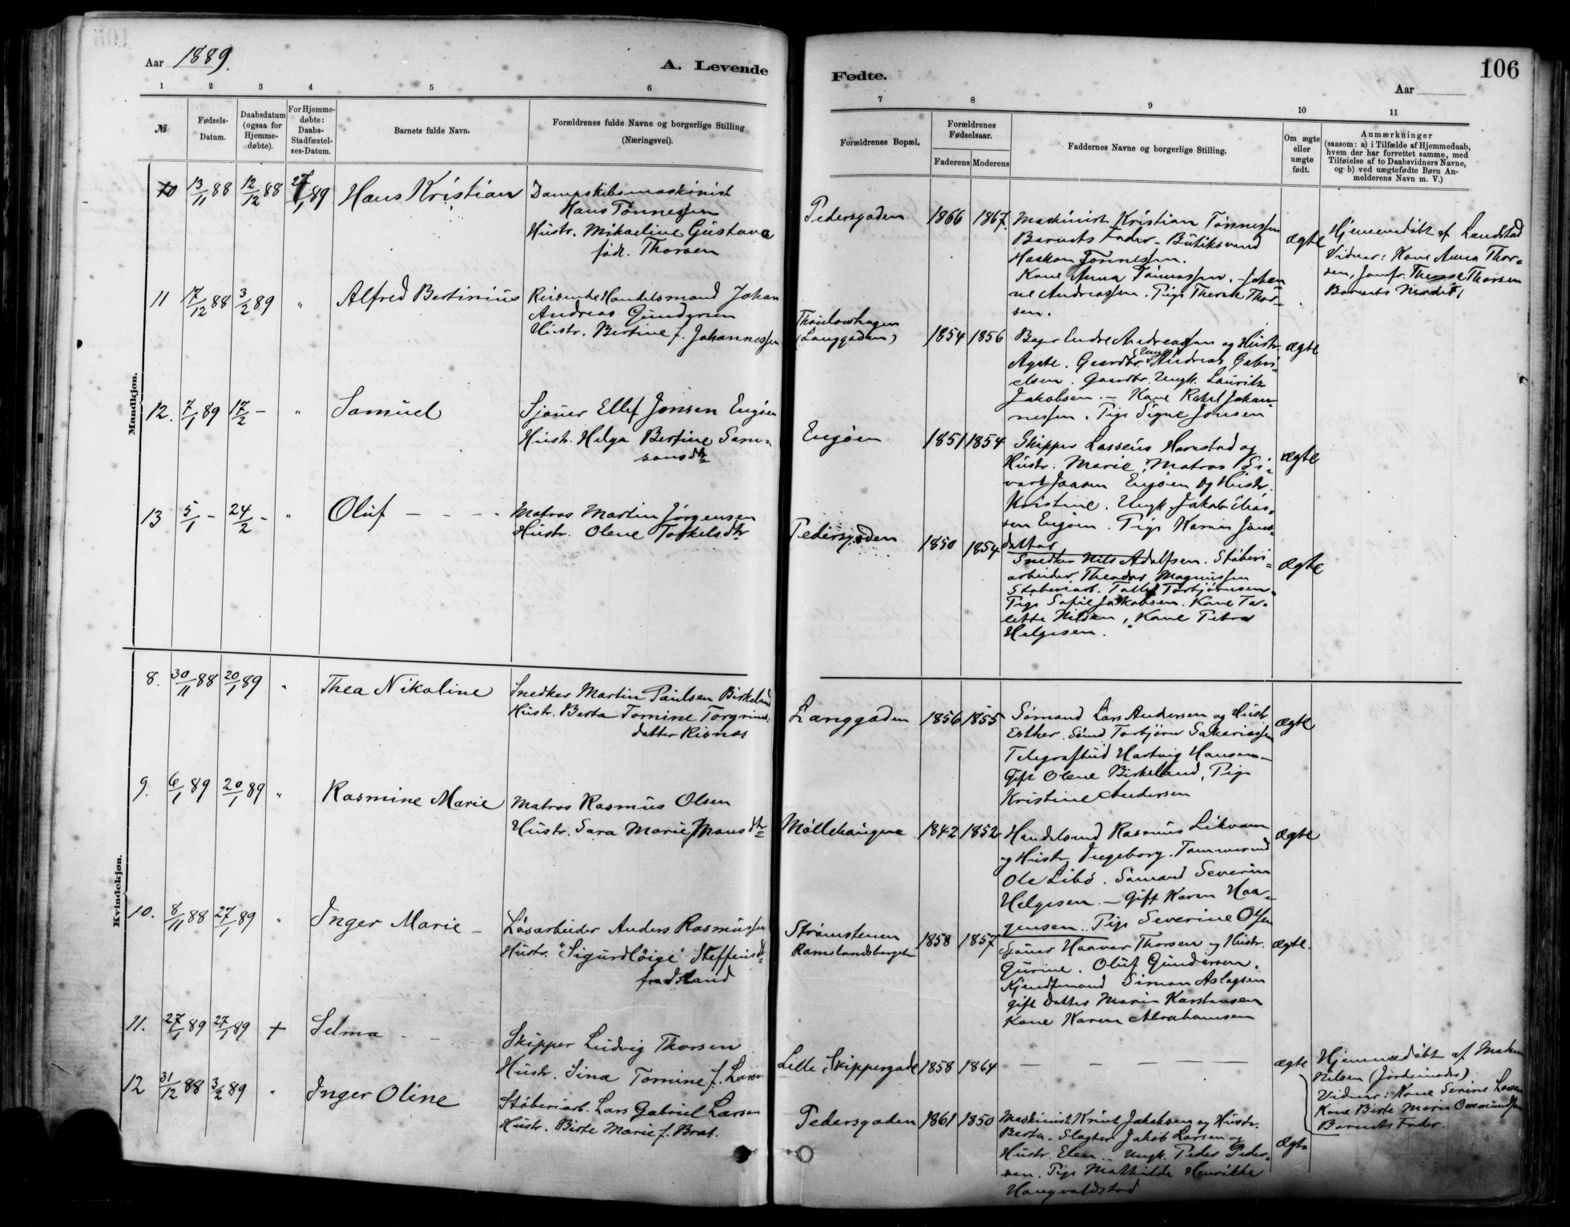 Aar 1889.
A. Levende
Fødte.
106
Aar
1 2 3 4 5 6 7 8 9 10 11
№
Fødsels-
Datum.
Daabsdatum
(ogsaa for
Hjemme-
døbte).
For Hjemme-
døbte:
Daabs-
Stadfæstel-
ses-Datum.
Barnets fulde Navn.
Forældrenes fulde Navne og borgerlige Stilling
(Næringsvei).
Forældrenes Bopæl.
Forældrenes
Fødselsaar.
Faderens Moderens
Faddernes Navne og borgerlige Stilling.
Om ægte
eller
uægte
født.
Anmærkninger
(saasom: a) i Tilfælde af Hjemmedaab,
hvem der har forrettet samme, med
Tilføielse af to Daabsvidners Navne,
og b) ved uægtefødte Børn An-
melderens Navn m. V.)
Mandkjøn.
10 13/11 88 12/12 88 27/1 89 Hans Kristian
Dampskibsmaskinist
Hans Tönnessen
Hustr. Mikaeline Gustava
föd. Thorsen
Pedersgaden 1866 1867.
Maskinist Kristian Tönnessen
Barnets Fader - Butiksvend
Haakon Tönnessen.
Kone Anna Tönnessen. - Johan-
ne Andreassen. Pige Therese Thor-
sen.
ægte
Hjemmedöbt af Landstad
Vidner: Kone Anna Thor-
sen, Jomfr. Therese Thorsen
Barnets Moder,
11 7/12 88 3/2 89 " Alfred Bertinius
Reisende Handelsmand Johan
Andreas Gundersen
Hustr. Bertine f. Johannessen
Thoulowhagen
(Langgaden) 1854 1856
Bager Endre Andreassen og Hustr
Agate. Gaardbr. Ungk. Andreas Gabri-
elsen. Gaardbr. Ungk. Laurits
Jakobsen. - Kone Rakel Johan-
nessen. Pige Signe Jonsen
ægte
12. 7/1 89 17/2 - " Samuel
Sjouer Ellef Jonsen Engöen
Hustr. Helga Bertine Sam-
sonsdtr
Engöen 1851 1854
Skipper Lasseus Harestad og
Hustr. Marie. Matros Si-
vert Jonsen Engöen og Hustr.
Kristine. Ungk. Jakob Elias-
sen Engöen. Pige Karen Jons-
datter
ægte
13 5/1 - 24/2 - " Oluf
Matros Martin Jörgensen
Hustr. Olene Torkelsdtr
Pedersgaden 1850 1854
Snedker Nils Adolfsen. Stöberi-
arbeider Theodor Magnussen
Stöberiarb. Tollef Torbjörnsen.
Pige Sofie Jakobsen. Kone Ta-
lette Nilsen, Kone Petra
Helgesen.
ægte
Kvindekjøn.
8. 30/11 88 20/1 89 " Thea Nikoline
Snedker Martin Paulsen Birkeland
Hustr. Berta Tomine Torgrims-
datter Risnes
Langgaden 1856 1855
Sömand Lars Andersen og Hustr
Esther. Sömd Torbjörn Sakariassen
Telegrafbud Hartvig Hansen -
Gift Olene Birkeland, Pige
Kristine Andersen
ægte
9. 6/1 89 20/1 89 " Rasmine Marie
Matros Rasmus Olsen
Hustr. Sara Marie Monsdtr
Möllehaugene 1842 1852
Handelsmd Rasmus Likvam
og Hustr. Ingeborg. Tömmermd
Ole Libö. Sömand Severin
Helgesen. - Gift Karen Haa-
gensen. Pige Severine Olsen
ægte
10. 8/11 88 27/1 89 " Inger Marie -
Lösarbeider Anders Rasmussen
Hustr. "Sigurdlöige" Steffensdtr
fra Island
Strömstenen
Ramslandsberget 1858 1857
Sjouer Haavar Thorsen og Hustr.
Gurine. Oluf Gundersen.
Kjendtmand Simon Aslagsen
gift Datter Marie Karstensen
Kone Karen Abrahamsen
ægte.
11. 27/1 89 27/1 89 + Selma
Skipper Ludvig Thorsen
Hustr. Sina Tomine f. Larsen
Lille Skippergade 1858 1864
ægte
Hjemmedöbt af Maren
Nilsen (Jordemoder)
Vidner: Kone Serine Larsen
Kone Birte Marie Ommundsen
Barnets Fader.
12 31/12 88 3/2 89 " Inger Oline
Stöberiarb. Lars Gabriel Larsen
Hustr. Birte Marie f. Brat.
Pedersgaden 1861 1850
Maskinist Knut Jakobsen og Hustr.
Berta. Slagter Jakob Larsen og
Hustr. Elen. - Ungk. Peder Peder-
sen. Pige Mathilde Henrikke
Haugvaldstad
ægte